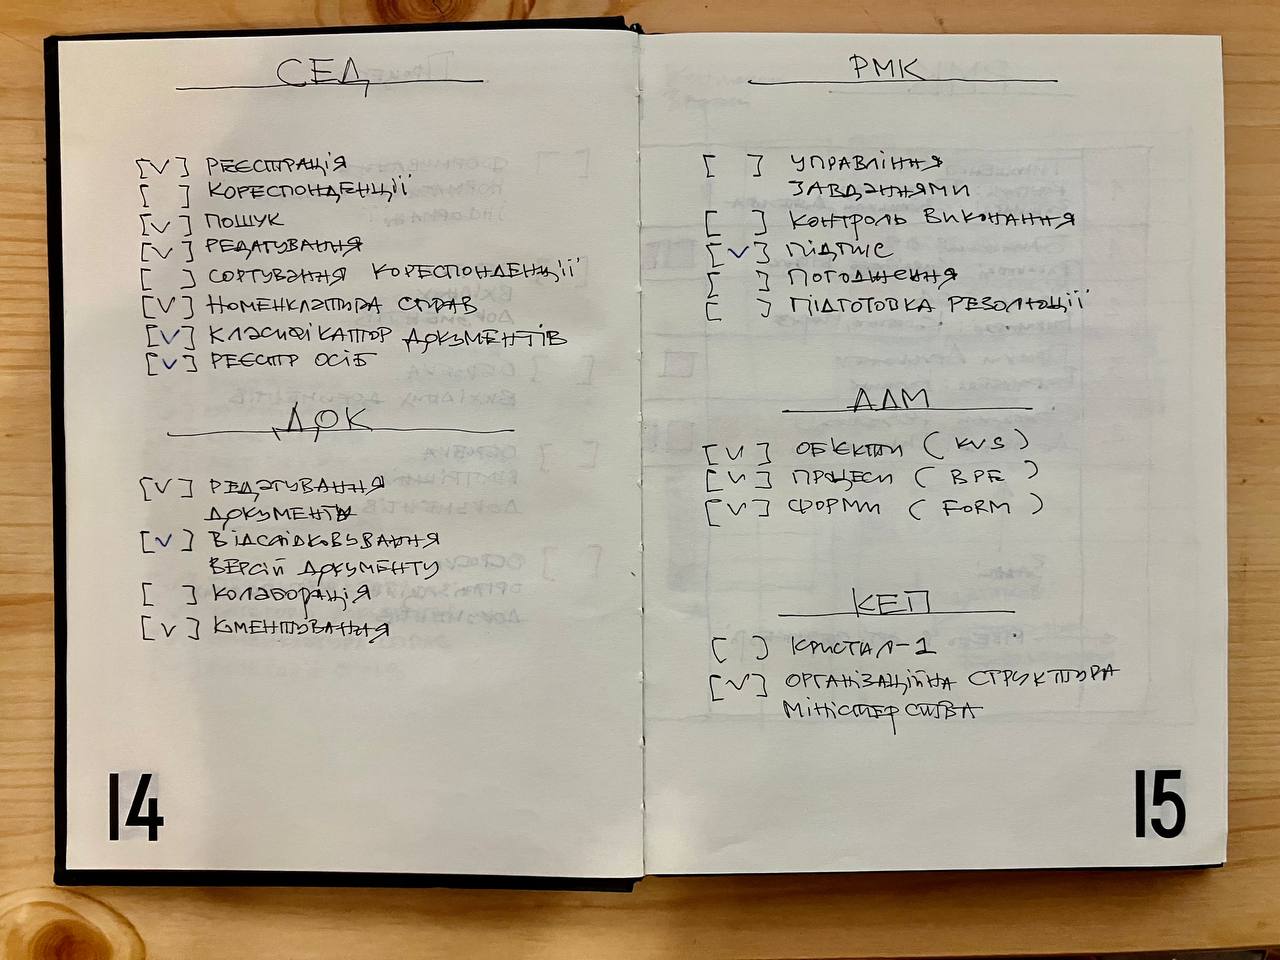 СЕД
[V] РЕЄСТРАЦІЯ
[ ] КОРЕСПОНДЕНЦІЇ
[V] ПОШУК
[V] РЕДАГУВАННЯ
[ ] СОРТУВАННЯ КОРЕСПОНДЕНЦІЇ
[V] НОМЕНКЛАТУРА СПРАВ
[V] КЛАСИФІКАТОР ДОКУМЕНТІВ
[V] РЕЄСТР ОСІБ
ДОК
[V] РЕДАГУВАННЯ
ДОКУМЕНТУ
[V] ВІДСЛІДКОВУВАННЯ
ВЕРСІЙ ДОКУМЕНТУ
[ ] КОЛАБОРАЦІЯ
[V] КМЕНТУВАННЯ
14
РМК
[ ] УПРАВЛІННЯ
ЗАВДАННЯМИ
[ ] КОНТРОЛЬ ВИКОНАННЯ
[V] ПІДПИС
[ ] ПОГОДЖЕННЯ
[ ] ПІДГОТОВКА РЕЗОЛЮЦІЇ
АДМ
[V] ОБ'ЄКТИ (KVS)
[V] ПРОЦЕСИ (BPE)
[V] ФОРМИ (FORM)
КЕП
[ ] КРИСТАЛ-1
[V] ОРГАНІЗАЦІЙНА СТРУКТУРА
МІНІСТЕРСТВА
15